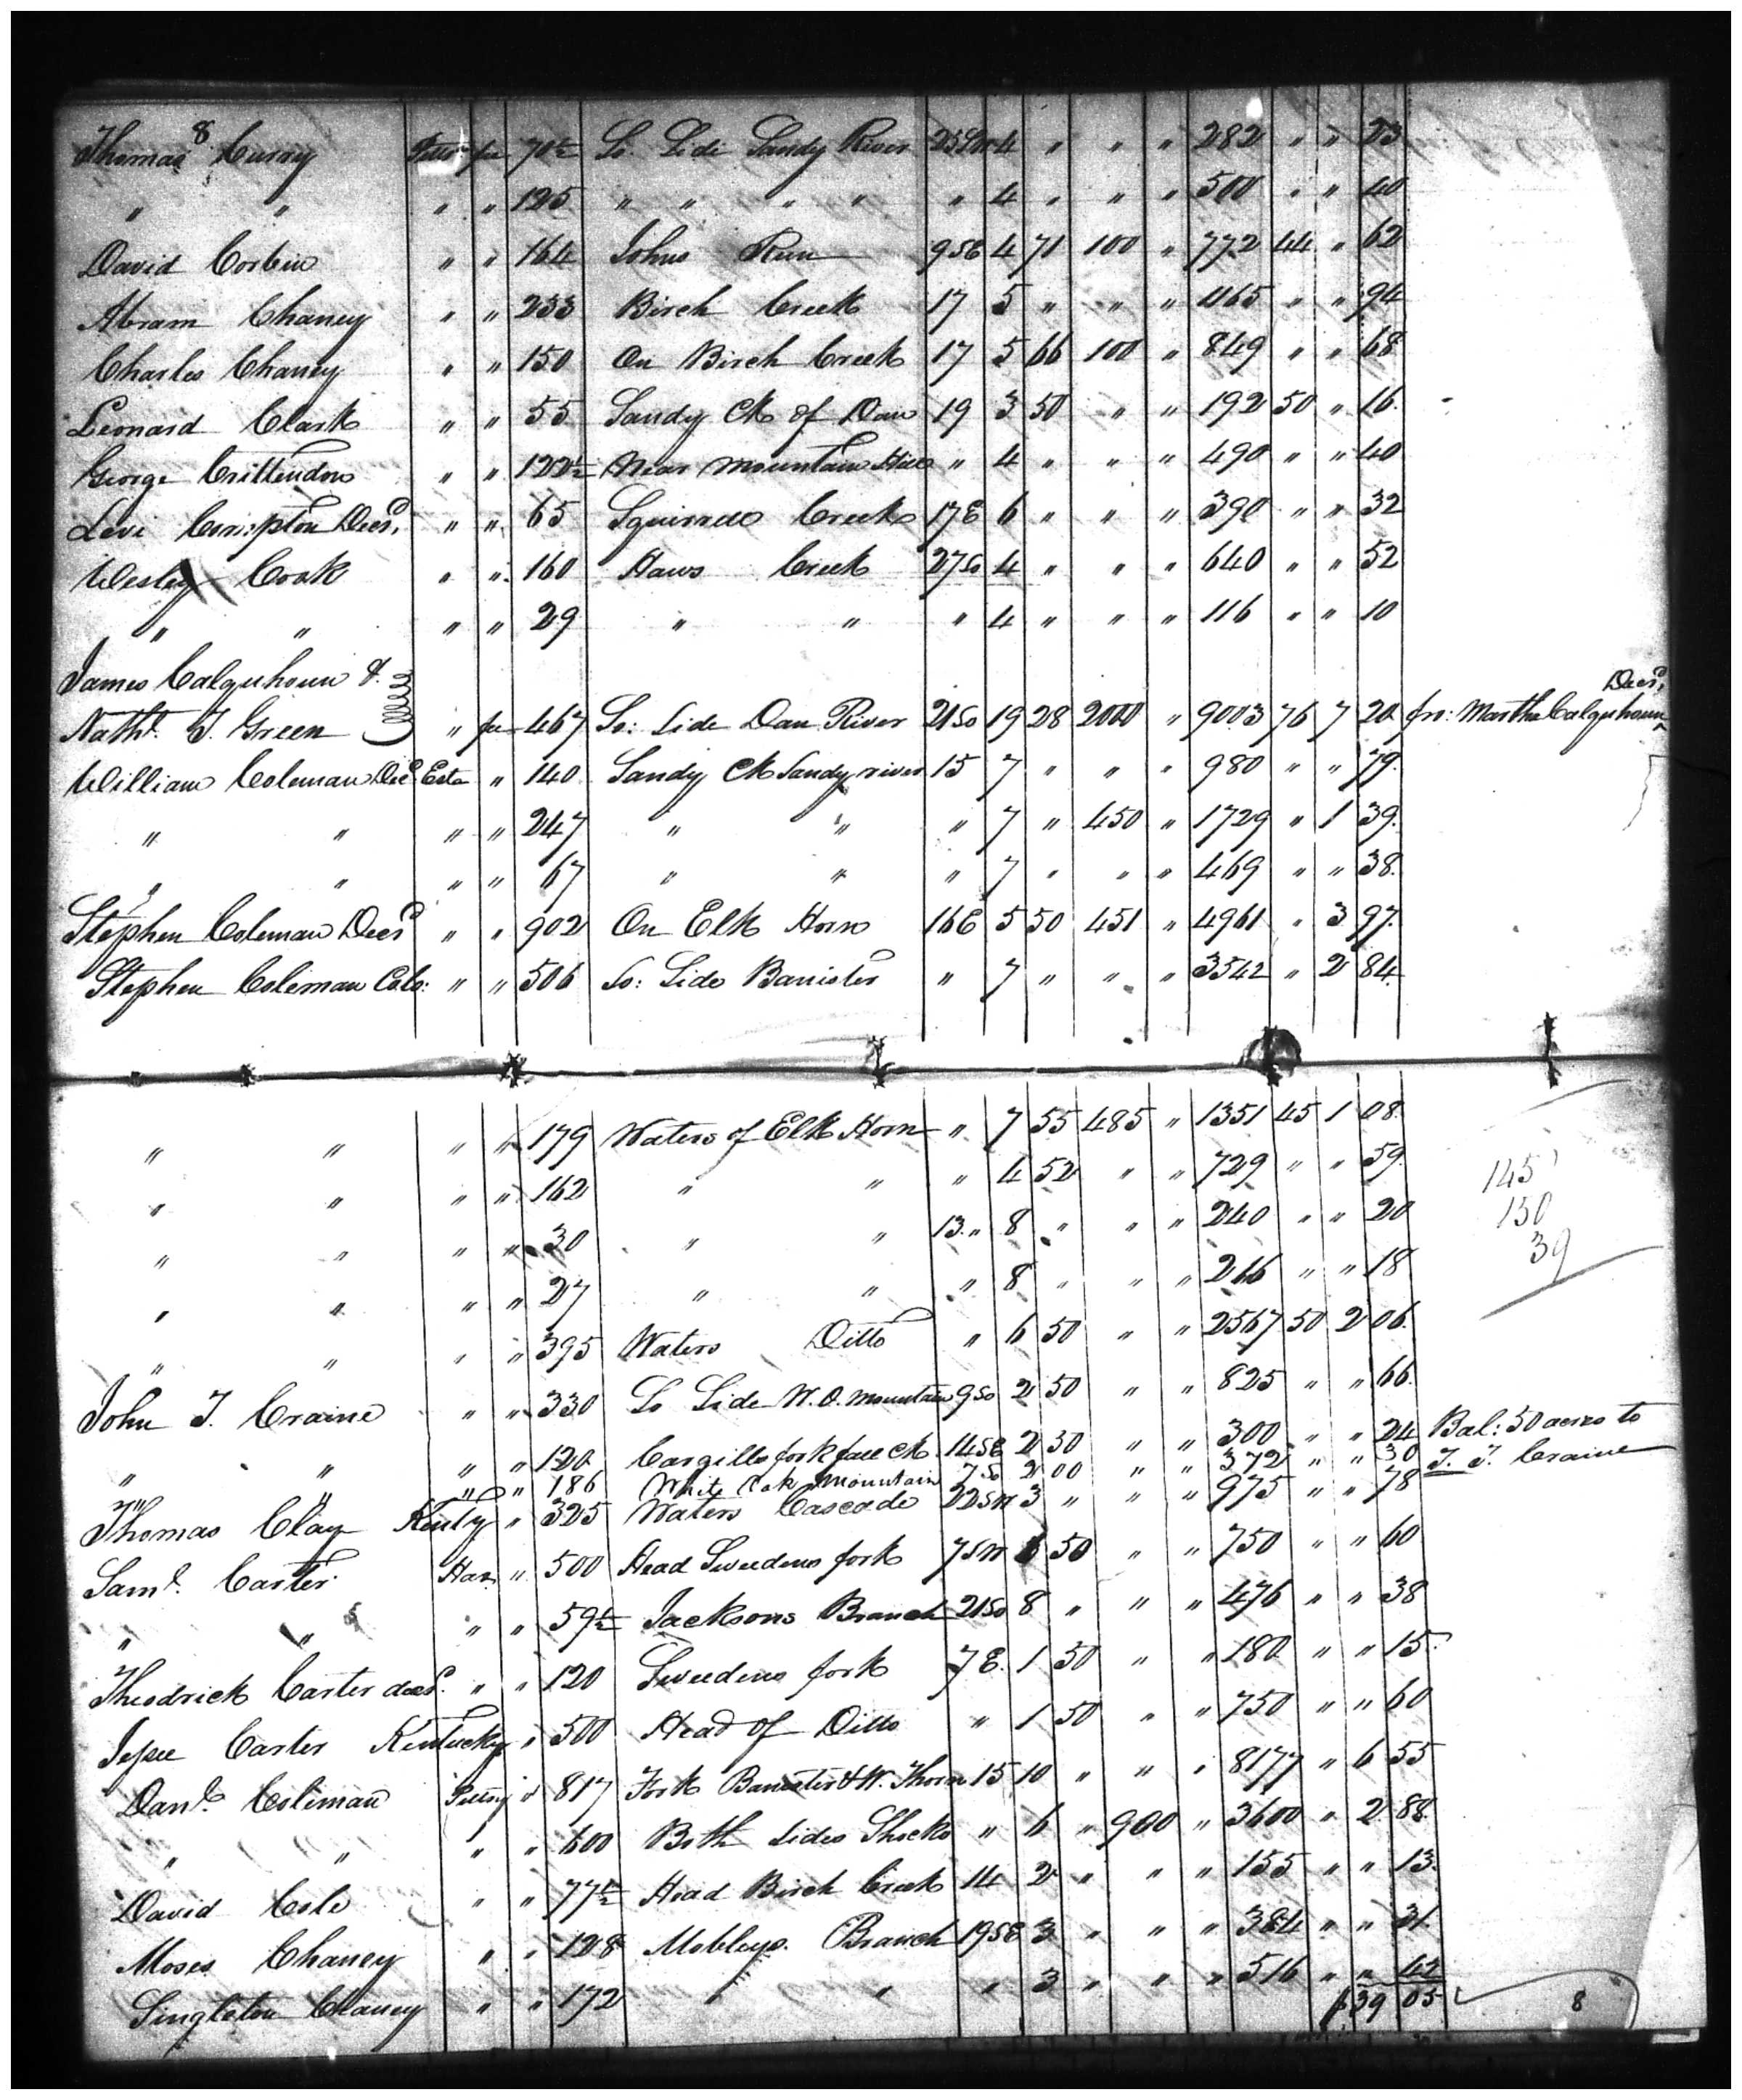 8
Thomas Curry Pittsa fee 70½ So. Side Sandy River 25SW 4 " " " 282 " " 23
" " " " 125 " " " " " 4 " " " 500 " " 40
David Corbin " " 164 Johns Run 9SE 4 71 100 " 772 44 " 62
Abram Chaney " " 233 Birch Creek 17 5 " " " 1165 " " 94
Charles Chaney " " 150 On Birch Creek 17 5 66 100 " 849 " " 68
Leonard Clark " " 55 Sandy Ck of Dan 19 3 50 " " 192 50 " 16.
George Crittendon " " 122½ Near Mountain Hill " 4 " " " 490 " " 40
Levi Crumpton Decd. " " 65 Squirrell Creek 17E 6 " " " 390 " " 32
Wesley Cook " " 160 Haws Creek 27So 4 " " " 640 " " 52
" " " " 29 " " " 4 " " " 116 " " 10
James Calquhoun &
Nathl. T. Green " fee 467 So: Side Dan River 21So 19 28 2000 " 9003 76 7 20 fro: Martha Calquhoun Decd.
William Coleman Decd Esta " 140 Sandy Ck Sandy river 15 7 " " " 980 " " 79.
" " " " 247 " " " 7 " 450 " 1729 " 1 39.
" " " " 67 " " " 7 " " " 469 " " 38.
Stephen Coleman Decd " " 902 On Elk Horn 16E 5 50 451 " 4961 " 3 97.
Stephen Coleman Colo: " " 506 So: Side Banister " 7 " " " 3542 " 2 84.
" " " " 179 Waters of Elk Horn " 7 55 485 " 1351 45 1 08.
" " " " 162 " " " 4 52 " " 729 " " 59.
" " " " 30 " " 13 " 8 " " " 240 " " 20
" " " " 27 " " " 8 " " " 216 " " 18
" " " " 395 Waters Ditto " 6 50 " " 2567 50 2 06.
145
150
39
John T. Craine " " 330 So Side W. O. Mountain 9So 2 50 " " 825 " " 66.
" " " " 120 Cargills fork fall Ck. 14SE 2 50 " " 300 " " 24 Bal: 50 acres to
" " " " 186 White Oak Mountain 7So 2 00 " " 372 " " 30 T. T. Craine
Thomas Clay Kenty " 325 Waters Cascade 22SW 3 " " " 975 " " 78
Saml. Carter Hax. " 500 Head Sweedens fork 7SW 1 50 " " 750 " " 60
" " " " 59½ Jacksons Branch 21So 8 " " " 476 " " 38
Theodrick Carter decd. " " 120 Sweedens fork 7E. 1 50 " " 180 " " 15.
Jesse Carter Kentucky " 500 Head of Ditto " 1 50 " " 750 " " 60
Danl. Coleman Pittsy " 817 Fork Banister & W. Thorn 15 10 " " " 8177 " 6 55
" " " " 600 Both Sides Shocko " 6 " 900 " 3600 " 2 88.
David Cole " " 77½ Head Birch Creek 14 2 " " " 155 " " 13.
Moses Chaney " " 128 Mobleys Branch 19SE 3 " " " 384 " " 31.
Singleton Chaney " " 172 " " " 3 " " " 516 " " 42
$39 05
8